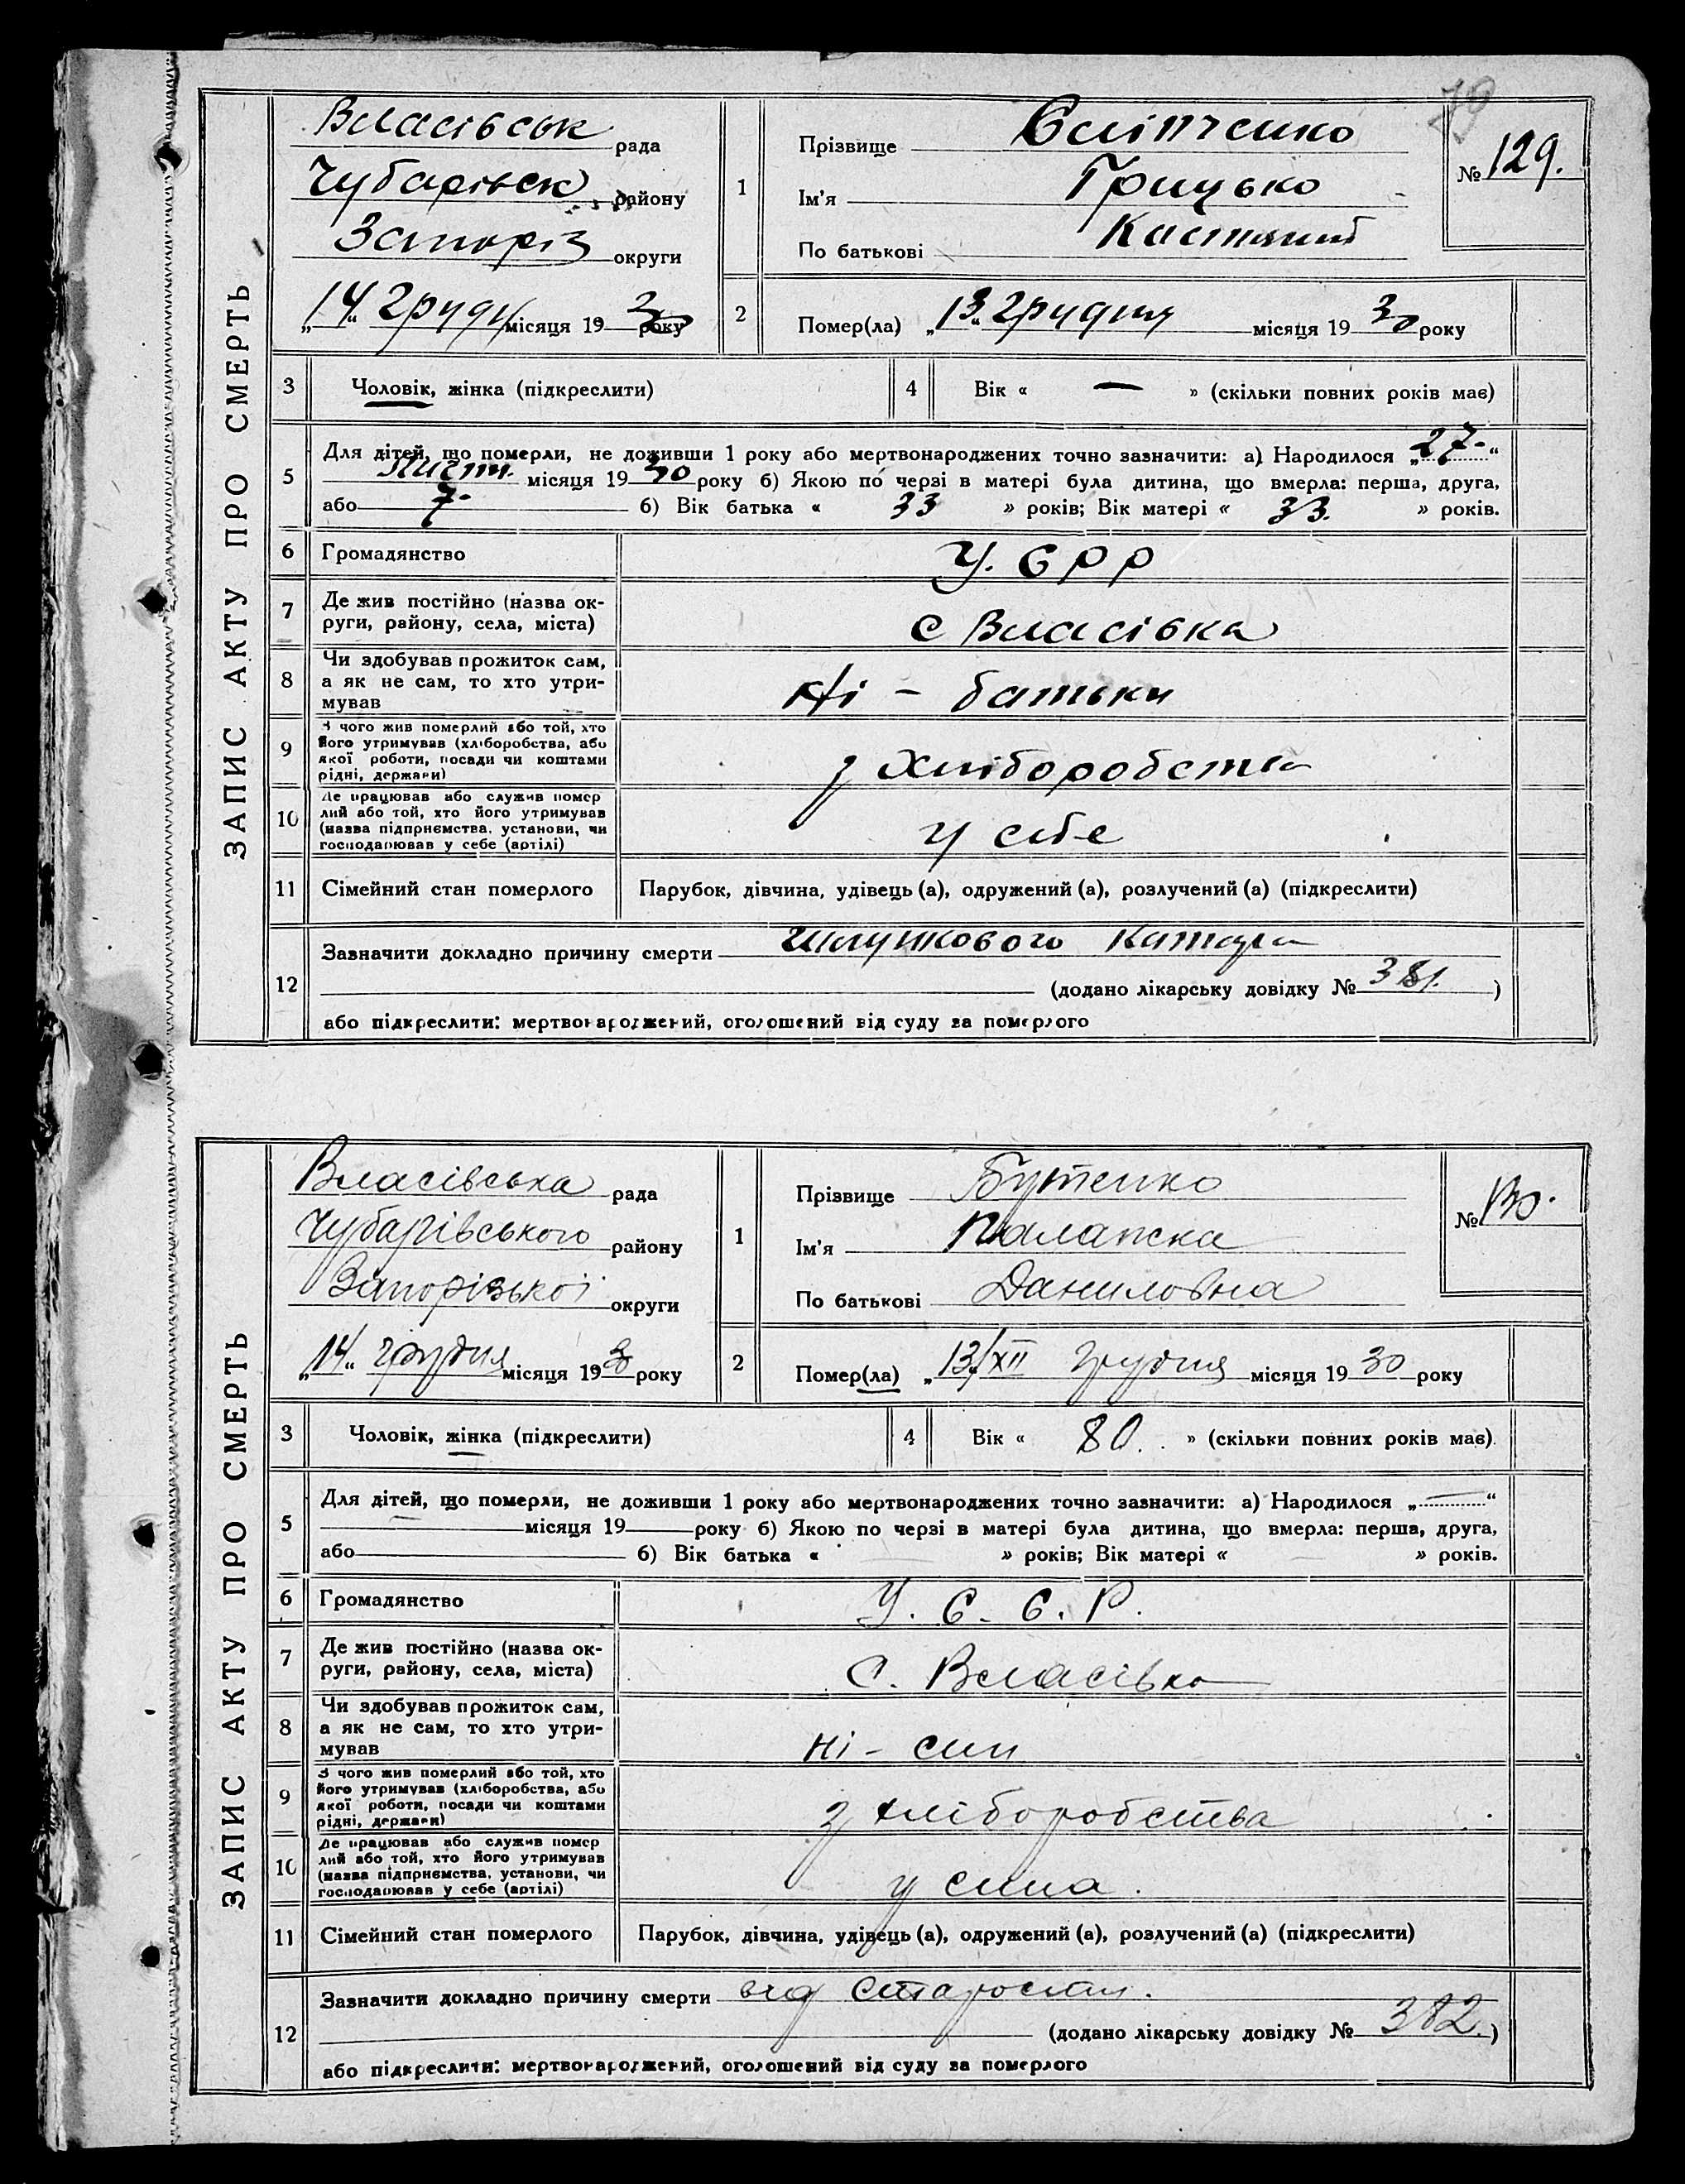 79
ЗАПИС АКТУ ПРО СМЕРТЬ
Власівськ рада
Чубарівськ району
Запоріз округи
„14“ Грудн місяця 1930 року
1
Прізвище
Ім'я Грицько
По батькові
№ 129.
2
Помер(ла) „13“ Грудня місяця 1930 року
3 Чоловік, жінка (підкреслити)
4 Вік « — » (скільки повних років має)
5 Для дітей, що померли, не доживши 1 року або мертвонароджених точно зазначити: а) Народилося „27-“
Лист. місяця 1930 року б) Якою по черзі в матері була дитина, що вмерла: перша, друга,
або 7- б) Вік батька « 33 » років; Вік матері « 33. » років.
6 Громадянство У.СРР
7 Де жив постійно (назва ок-
руги, району, села, міста) с Власівка
8 Чи здобував прожиток сам,
а як не сам, то хто утри-
мував Ні – батьки
9 З чого жив померлий або той, хто
його утримував (хліборобства, або
якої роботи, посади чи коштами
рідні, держави) з Хліборобства
10 Де працював або служив помер
лий або той, хто його утримував
(назва підприємства, установи, чи
господарював у себе (артілі) у себе
11 Сімейний стан померлого Парубок, дівчина, удівець (а), одружений (а), розлучений (а) (підкреслити)
12 Зазначити докладно причину смерти Шлункового Катара
(додано лікарську довідку № 381. )
або підкреслити: мертвонароджений, оголошений від суду за померлого
ЗАПИС АКТУ ПРО СМЕРТЬ
Власівська рада
Чубарівського району
Запорізької округи
„14“ грудня місяця 1930 року
1
Прізвище Бутенко
Ім'я Палажка
По батькові Даниловна
№ 130.
2
Помер(ла) „13/XII грудня місяця 1930 року
3 Чоловік, жінка (підкреслити)
4 Вік « 80. » (скільки повних років має)
5 Для дітей, що померли, не доживши 1 року або мертвонароджених точно зазначити: а) Народилося „—“
— місяця 19 року б) Якою по черзі в матері була дитина, що вмерла: перша, друга,
або б) Вік батька « — » років; Вік матері « — » років.
6 Громадянство У.С.С.Р.
7 Де жив постійно (назва ок-
руги, району, села, міста) С. Власівка
8 Чи здобував прожиток сам,
а як не сам, то хто утри-
мував ні – син
9 З чого жив померлий або той, хто
його утримував (хліборобства, або
якої роботи, посади чи коштами
рідні, держави) з хліборобства
10 Де працював або служив помер
лий або той, хто його утримував
(назва підприємства, установи, чи
господарював у себе (артілі) у сина.
11 Сімейний стан померлого Парубок, дівчина, удівець (а), одружений (а), розлучений (а) (підкреслити)
12 Зазначити докладно причину смерти від старости.
(додано лікарську довідку № 382. )
або підкреслити: мертвонароджений, оголошений від суду за померлого